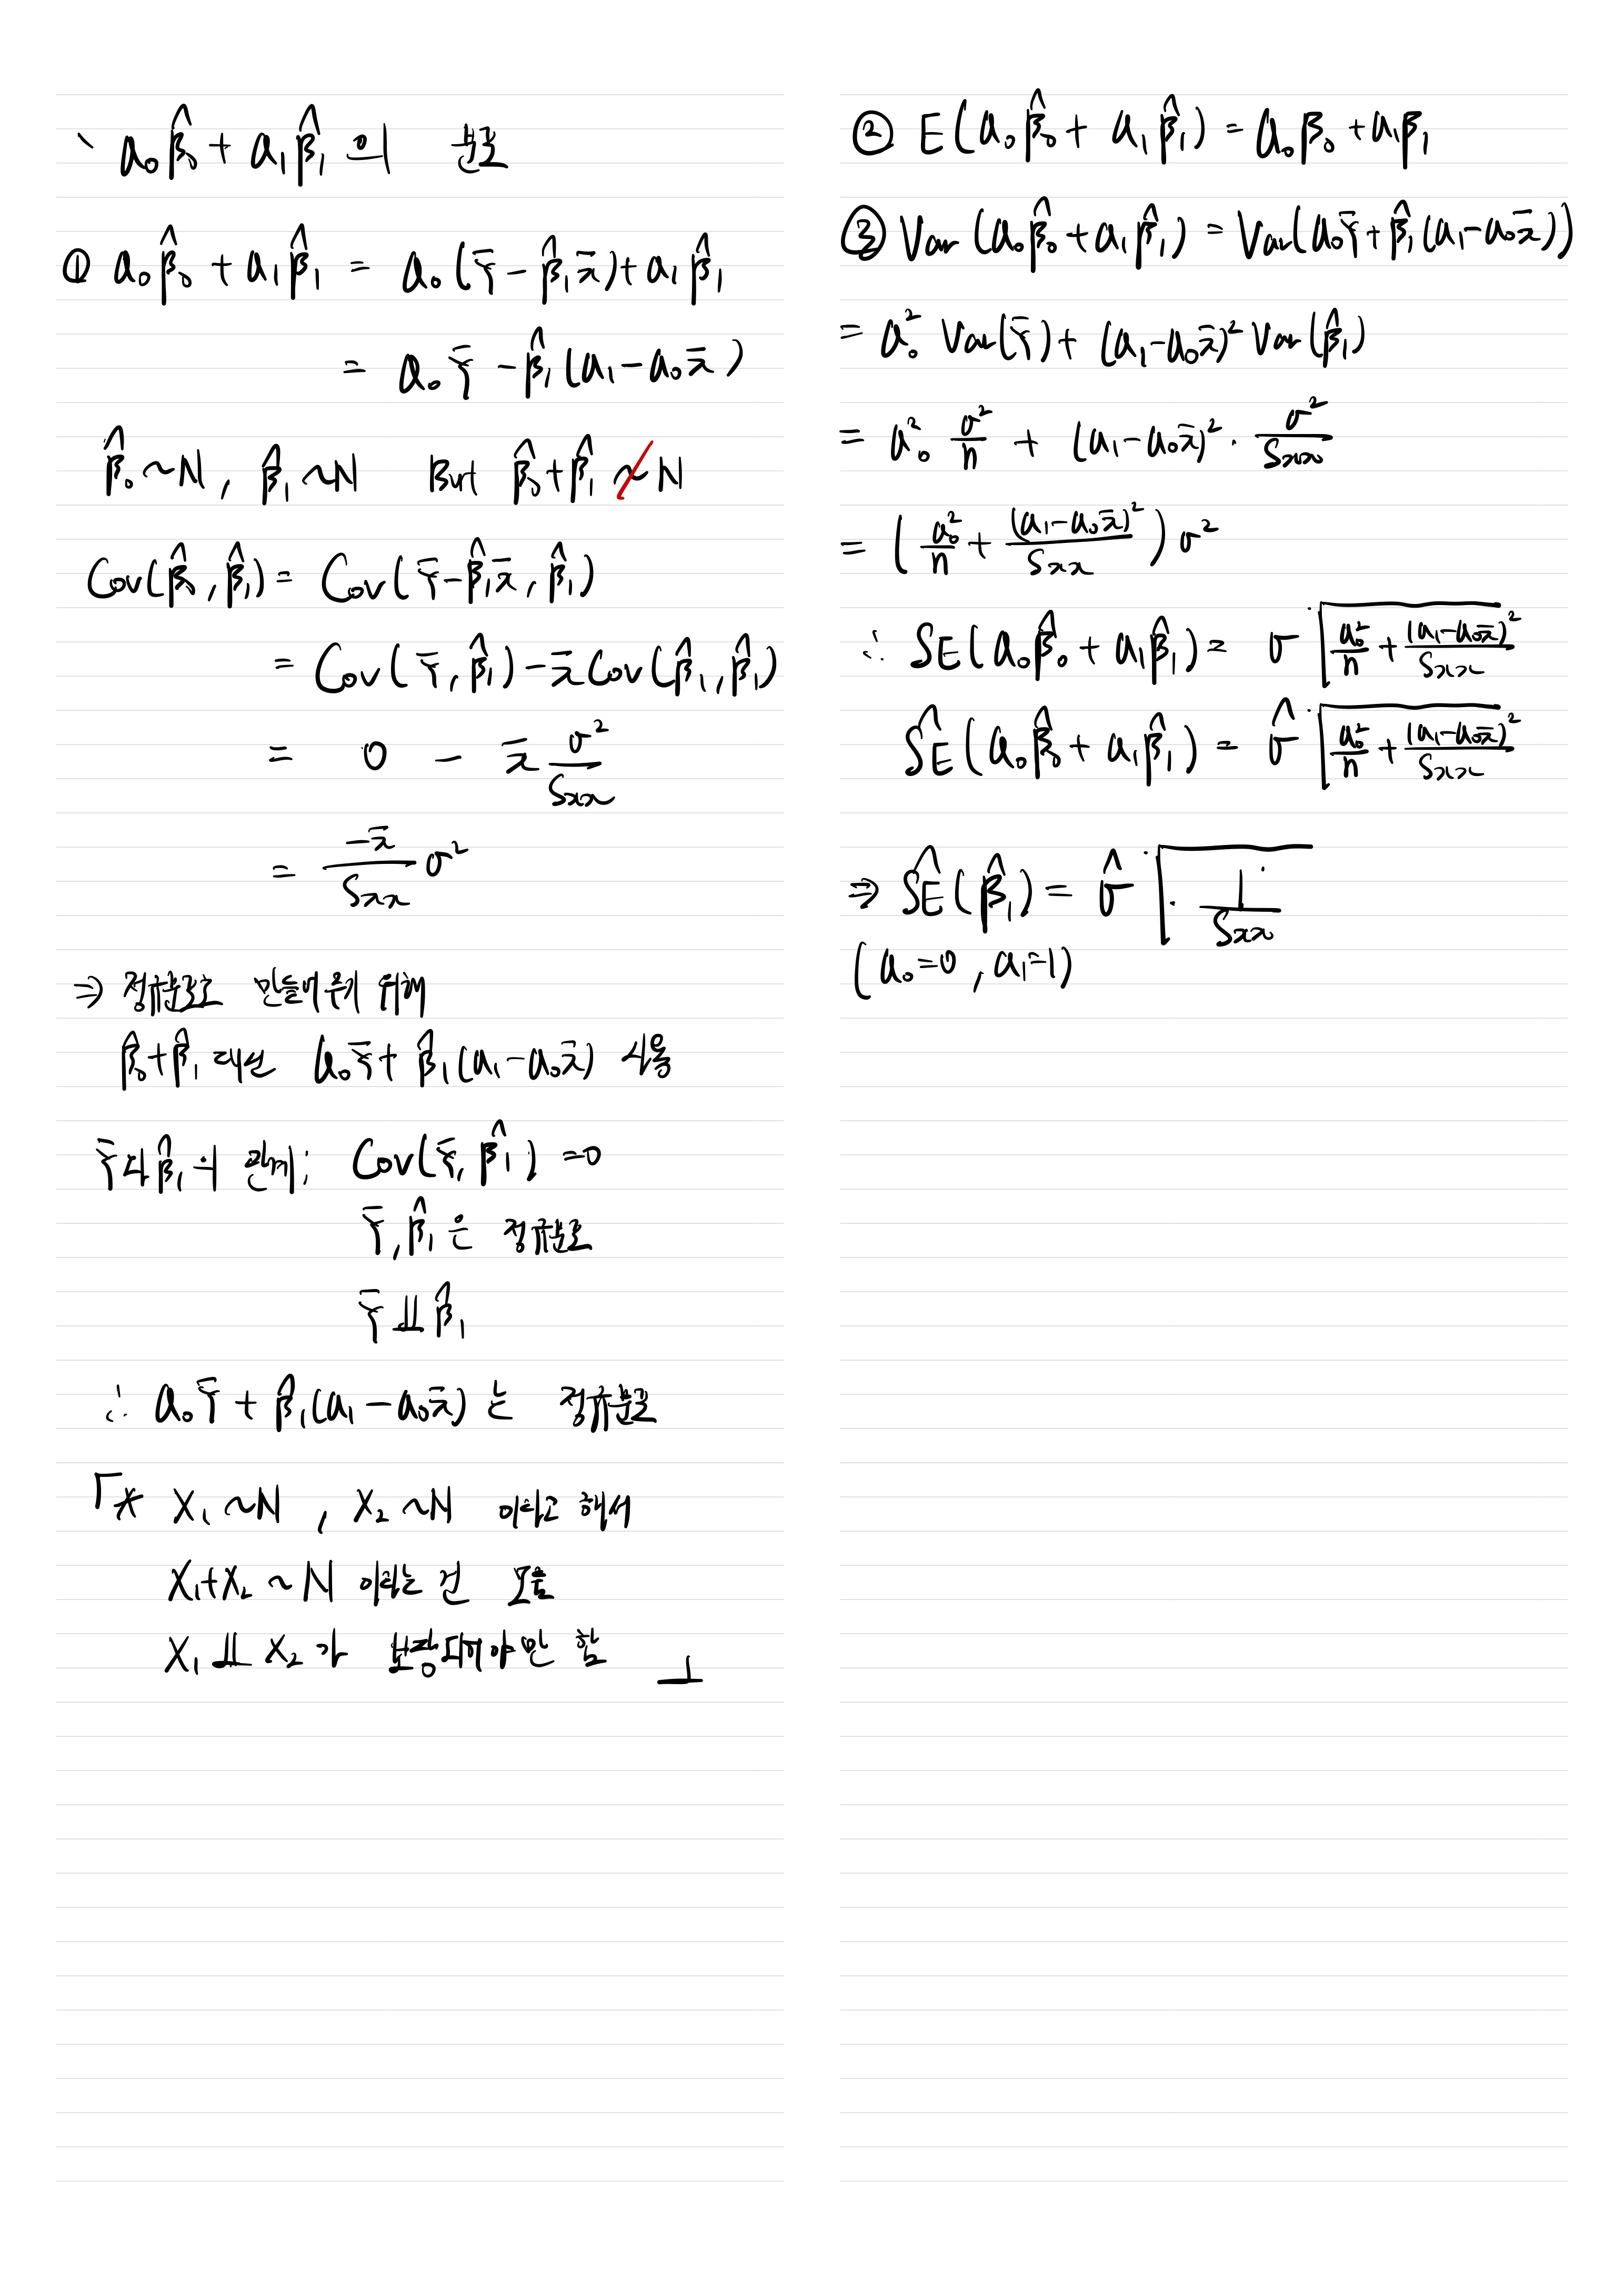 ` a₀β̂₀ + a₁β̂₁ 의 분포
① a₀β̂₀ + a₁β̂₁ = a₀(Ȳ - β̂₁x̄) + a₁β̂₁
= a₀Ȳ - β̂₁(a₁ - a₀x̄)
β̂₀ ~ N, β̂₁ ~ N But β̂₀ + β̂₁ ≁ N
Cov(β̂₀, β̂₁) = Cov(Ȳ - β̂₁x̄, β̂₁)
= Cov(Ȳ, β̂₁) - x̄Cov(β̂₁, β̂₁)
= 0 - x̄ σ²/Sxx
= -x̄/Sxx σ²
⇒ 정규분포로 만들어주기 위해
β̂₀ + β̂₁ 대신 a₀Ȳ + β̂₁(a₁ - a₀x̄) 사용
Ȳ와 β̂₁의 관계; Cov(Ȳ, β̂₁) = 0
Ȳ, β̂₁은 정규분포
Ȳ ⫫ β̂₁
∴ a₀Ȳ + β̂₁(a₁ - a₀x̄)는 정규분포
「* X₁ ~ N, X₂ ~ N 이라고 해서
X₁ + X₂ ~ N 이라는 건 모름
X₁ ⫫ X₂ 가 보장되어야만 함 」
② E(a₀β̂₀ + a₁β̂₁) = a₀β₀ + a₁β₁
③ Var(a₀β̂₀ + a₁β̂₁) = Var(a₀Ȳ + β̂₁(a₁ - a₀x̄))
= a₀² Var(Ȳ) + (a₁ - a₀x̄)² Var(β̂₁)
= a₀² σ²/n + (a₁ - a₀x̄)² · σ²/Sxx
= (a₀²/n + (a₁ - a₀x̄)²/Sxx) σ²
∴ SE(a₀β̂₀ + a₁β̂₁) = σ · √(a₀²/n + (a₁ - a₀x̄)²/Sxx)
ŜE(a₀β̂₀ + a₁β̂₁) = σ̂ · √(a₀²/n + (a₁ - a₀x̄)²/Sxx)
⇒ ŜE(β̂₁) = σ̂ · √(1/Sxx)
(a₀ = 0, a₁ = 1)